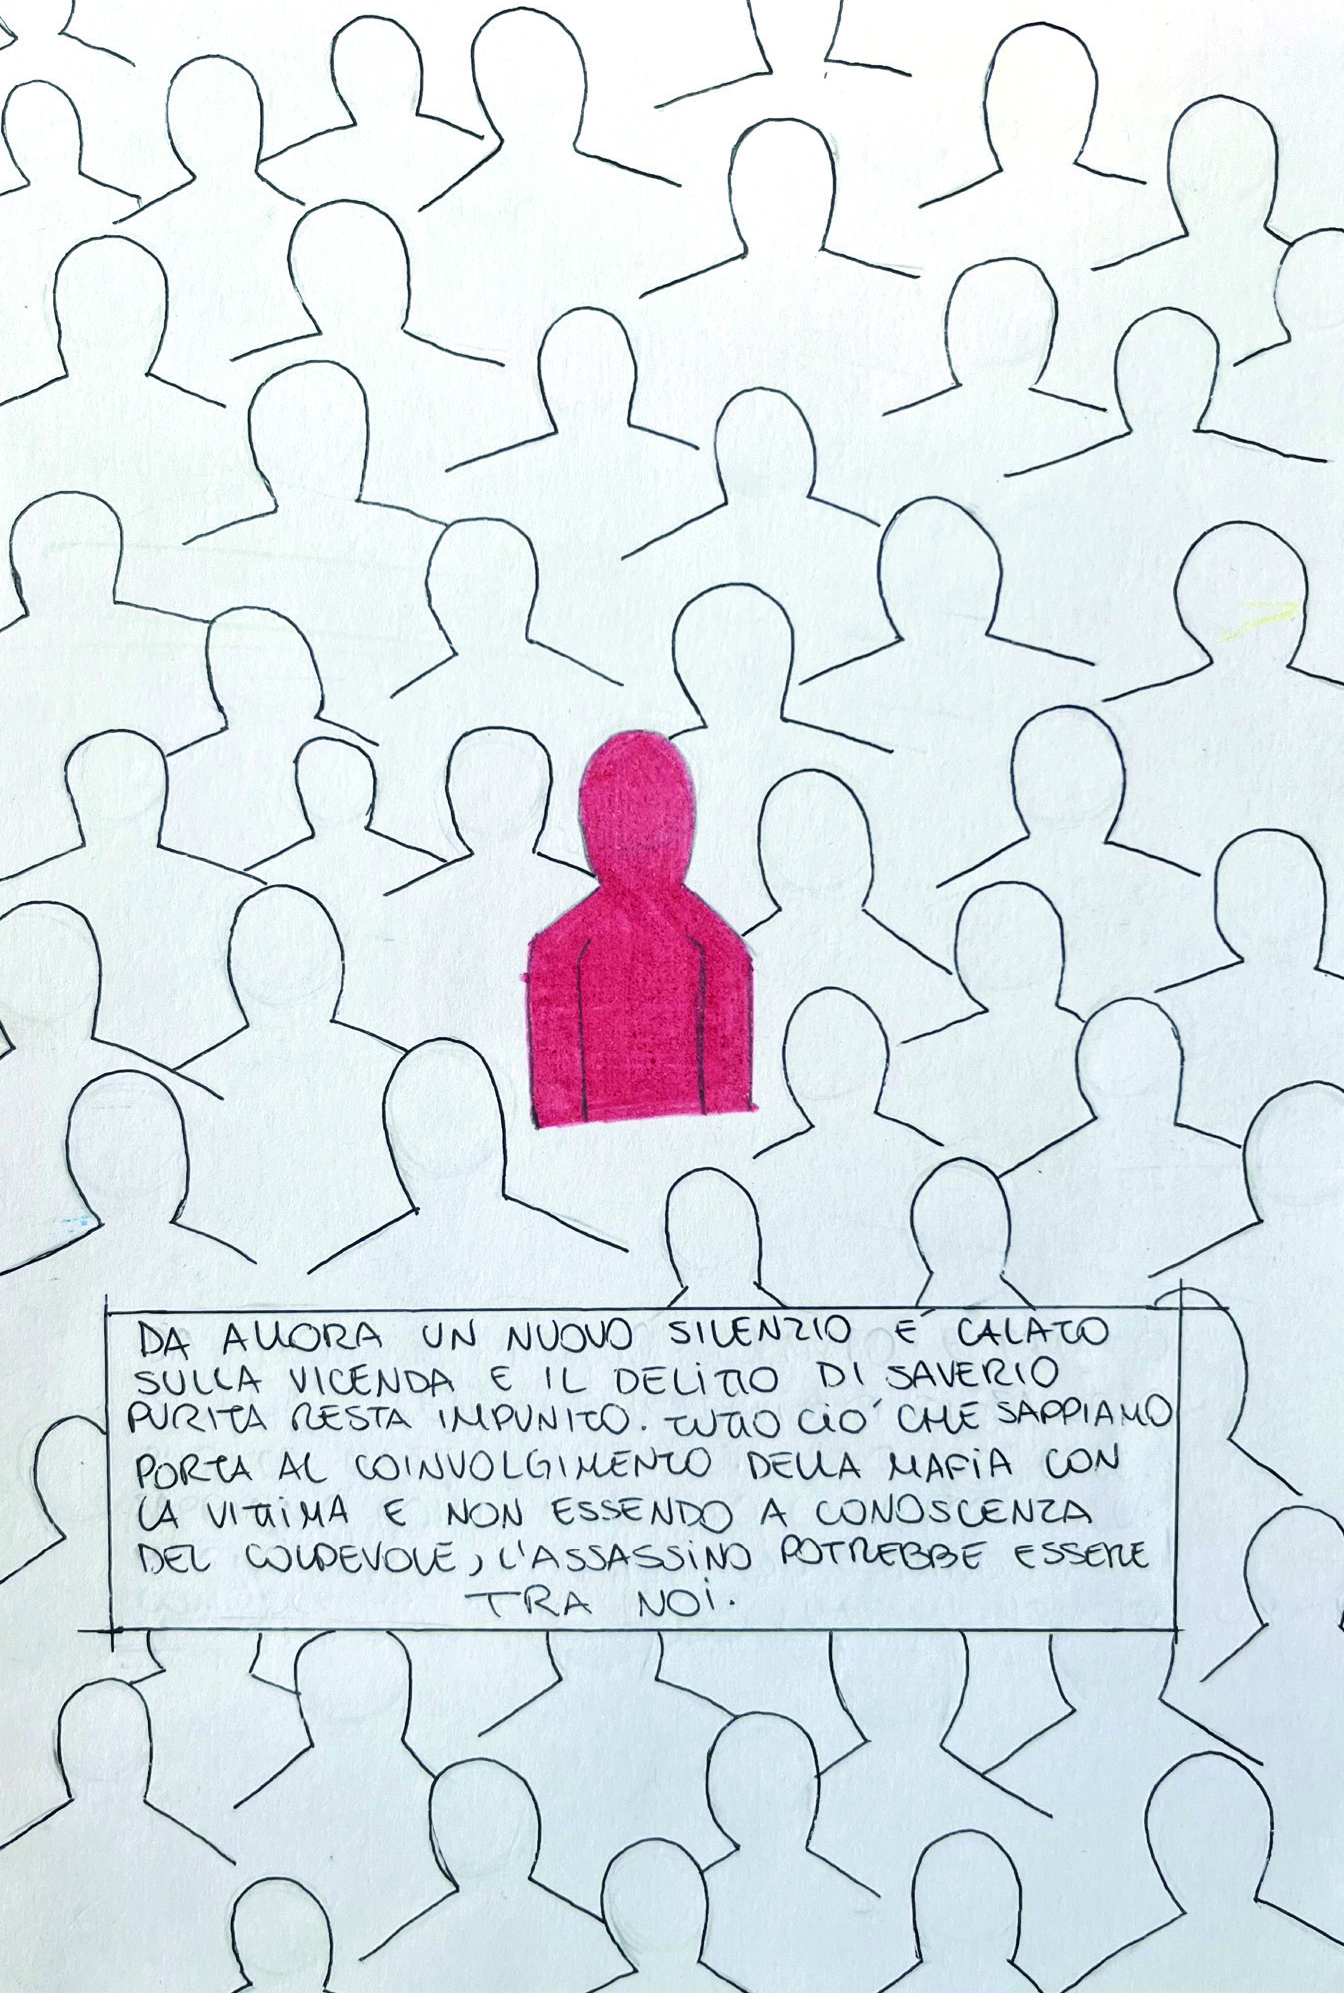 DA ALLORA UN NUOVO SILENZIO E' CALATO
SULLA VICENDA E IL DELITTO DI SAVERIO
PURITA RESTA IMPUNITO. TUTTO CIO' CHE SAPPIAMO
PORTA AL COINVOLGIMENTO DELLA MAFIA CON
LA VITTIMA E NON ESSENDO A CONOSCENZA
DEL COLPEVOLE, L'ASSASSINO POTREBBE ESSERE
TRA NOI.